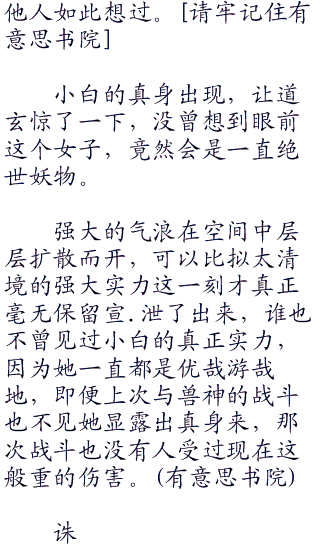 他人如此想过。[请牢记住有
意思书院]
小白的真身出现，让道
玄惊了一下，没曾想到眼前
这个女子，竟然会是一直绝
世妖物。
强大的气浪在空间中层
层扩散而开，可以比拟太清
境的强大实力这一刻才真正
毫无保留宣.泄了出来，谁也
不曾见过小白的真正实力，
因为她一直都是优哉游哉
地，即便上次与兽神的战斗
也不见她显露出真身来，那
次战斗也没有人受过现在这
般重的伤害。(有意思书院)
诛